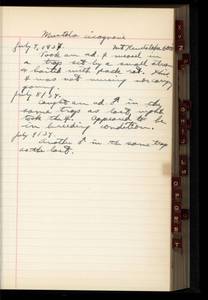 Mustela
July 7, 1934. Mt
Took an ad. ♀ weasel in
a trap set by a small stream
& baited with pack rat. This
♀ was not nursing or carry
young.
July 8/34.
Caught an ad. ♂ in the
same trap as last night
took the ♀. Appeared to be
in breeding condition.
July 9/34.
Another ♂ in the same trap
as the last.